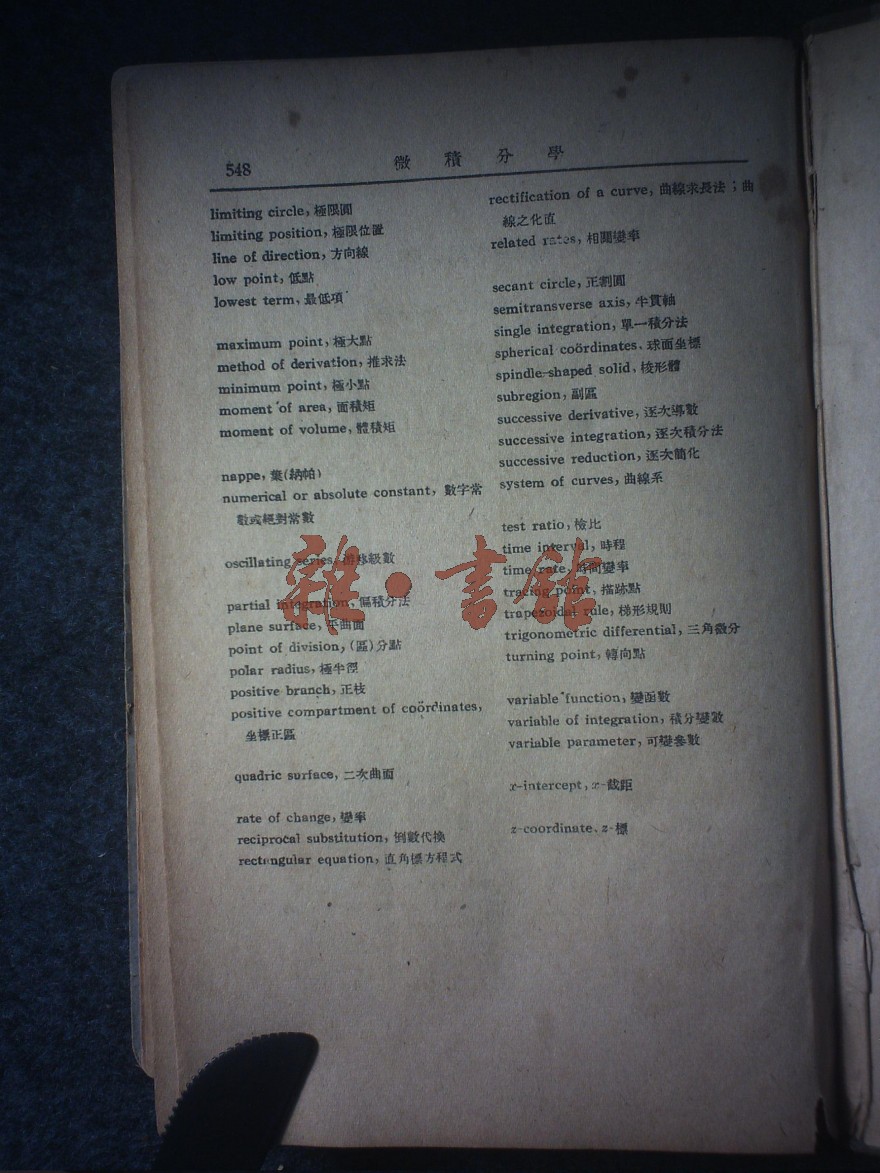 548
微積分學
limiting circle, 極限圓
limiting position, 極限位置
line of direction, 方向線
low point, 低點
lowest term, 最低項
maximum point, 極大點
method of derivation, 推求法
minimum point, 極小點
moment of area, 面積矩
moment of volume, 體積矩
nappe, 葉(納帕)
numerical or absolute constant, 數字常
數或絕對常數
oscillating series, 級數
partial integration, 偏積分法
plane surface, 平曲面
point of division, (區)分點
polar radius, 極半徑
positive branch, 正枝
positive compartment of coördinates,
坐標正區
quadric surface, 二次曲面
rate of change, 變率
reciprocal substitution, 倒數代換
rectangular equation, 直角標方程式
rectification of a curve, 曲線求長法；曲
線之化直
related rates, 相關變率
secant circle, 正割圓
semitransverse axis, 半貫軸
single integration, 單一積分法
spherical coördinates, 球面坐標
spindle-shaped solid, 梭形體
subregion, 副區
successive derivative, 逐次導數
successive integration, 逐次積分法
successive reduction, 逐次簡化
system of curves, 曲線系
test ratio, 檢比
time interval, 時程
time rate, 時間變率
tracing point, 描跡點
trapezoidal rule, 梯形規則
trigonometric differential, 三角微分
turning point, 轉向點
variable function, 變函數
variable of integration, 積分變數
variable parameter, 可變參數
x-intercept, x-截距
z-coordinate, z-標
雜·書館